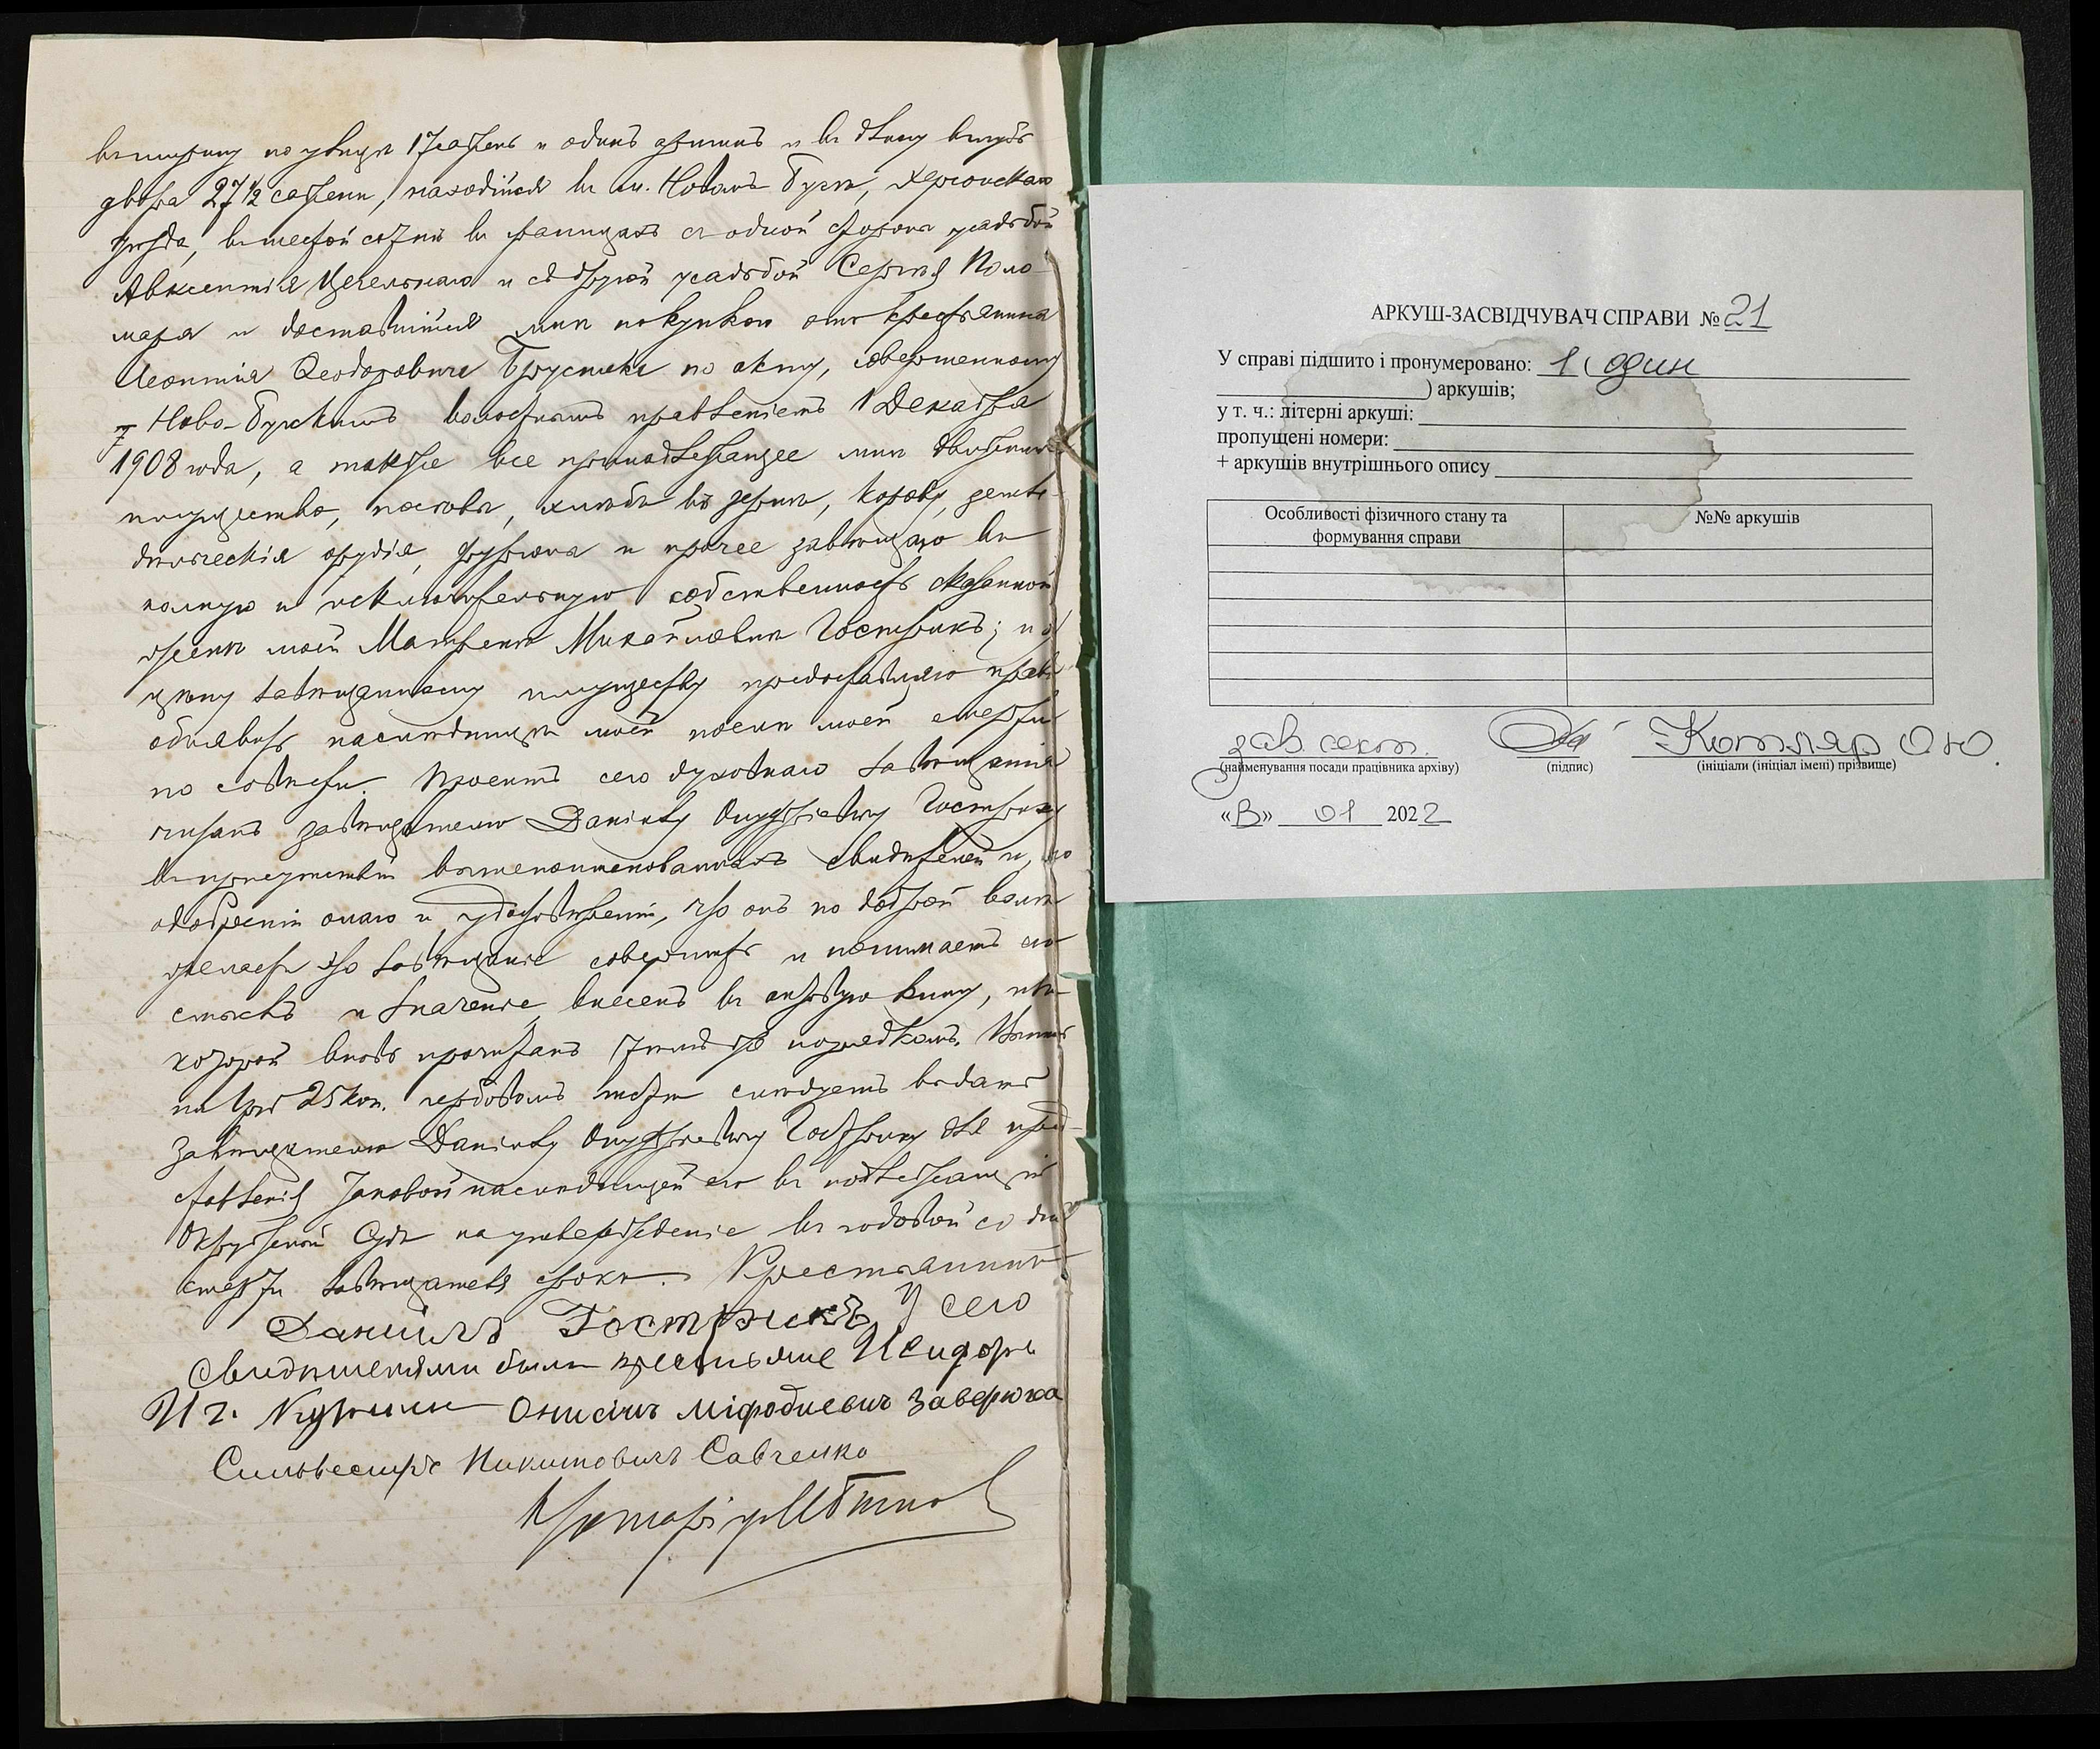 въ ширину по улицѣ 17 сажень и одинъ аршинъ и въ длину вглубь
двора 27 1/2 сажени, находійся въ м. Новомъ Бугѣ, Херсонскаго
уѣзда, въ шестой сотнѣ въ границахъ съ одной стороны усадьбой
Авксентія Цегельнаго и съ другой усадьбой Сергѣя Поно-
маря и доставшійся мнѣ покупкою отъ крестьянина
Леонтія Ѳеодоровича по акту, совершенному
Ново-Бугскимъ волостнымъ правленіемъ 1 Декабря
1908 года, а также все принадлежащее мнѣ движимое
имущество, посѣвы, хлѣбъ въ зернѣ, корову, земле-
дѣльческія орудія, и прочее завѣщаю въ
полную и исключительную собственность сказанной
женѣ моей Матренѣ Михайловнѣ Гострикъ;
цѣну завѣщанному имуществу предоставляю право
объявить наслѣдницѣ моей послѣ моей смерти
по совѣсти. Проектъ сего духовнаго завѣщанія
читанъ завѣщателю Даніилу Онуфріевичу Гострику
въ присутствіи вышепоименованныхъ свидѣтелей и, по
одобреніи онаго и удостовѣреніи, что онъ по доброй волѣ
желаетъ это завѣщаніе совершить и понимаетъ его
смыслъ и значеніе, внесенъ въ актовую книгу, по
которой вновь прочитанъ тѣмъ же порядкомъ.
25 коп. гербовомъ листѣ слѣдуетъ выдать
завѣщателю Даніилу Онуфріевичу Гострику для пред-
ставленія таковой наслѣдницей его въ подлежащій
Окружный Судъ на утвержденіе въ годовой со дня
смерти завѣщателя срокъ. Крестьянинъ
Даніилъ Гострикъ У сего
свидѣтелями были крестьяне Исидоръ
Онисимъ Міфодиевич Заверюха
Сильвестръ Никитовичъ Савченко
Нотаріусъ
АРКУШ-ЗАСВІДЧУВАЧ СПРАВИ № 21
У справі підшито і пронумеровано: 1 ( один
) аркушів;
у т. ч.: літерні аркуші:
пропущені номери:
+ аркушів внутрішнього опису
Особливості фізичного стану та
формування справи
№№ аркушів
зав. сект. Котляр О Ю.
(найменування посади працівника архіву) (підпис) (ініціали (ініціал імені) прізвище)
«13» 01 2022